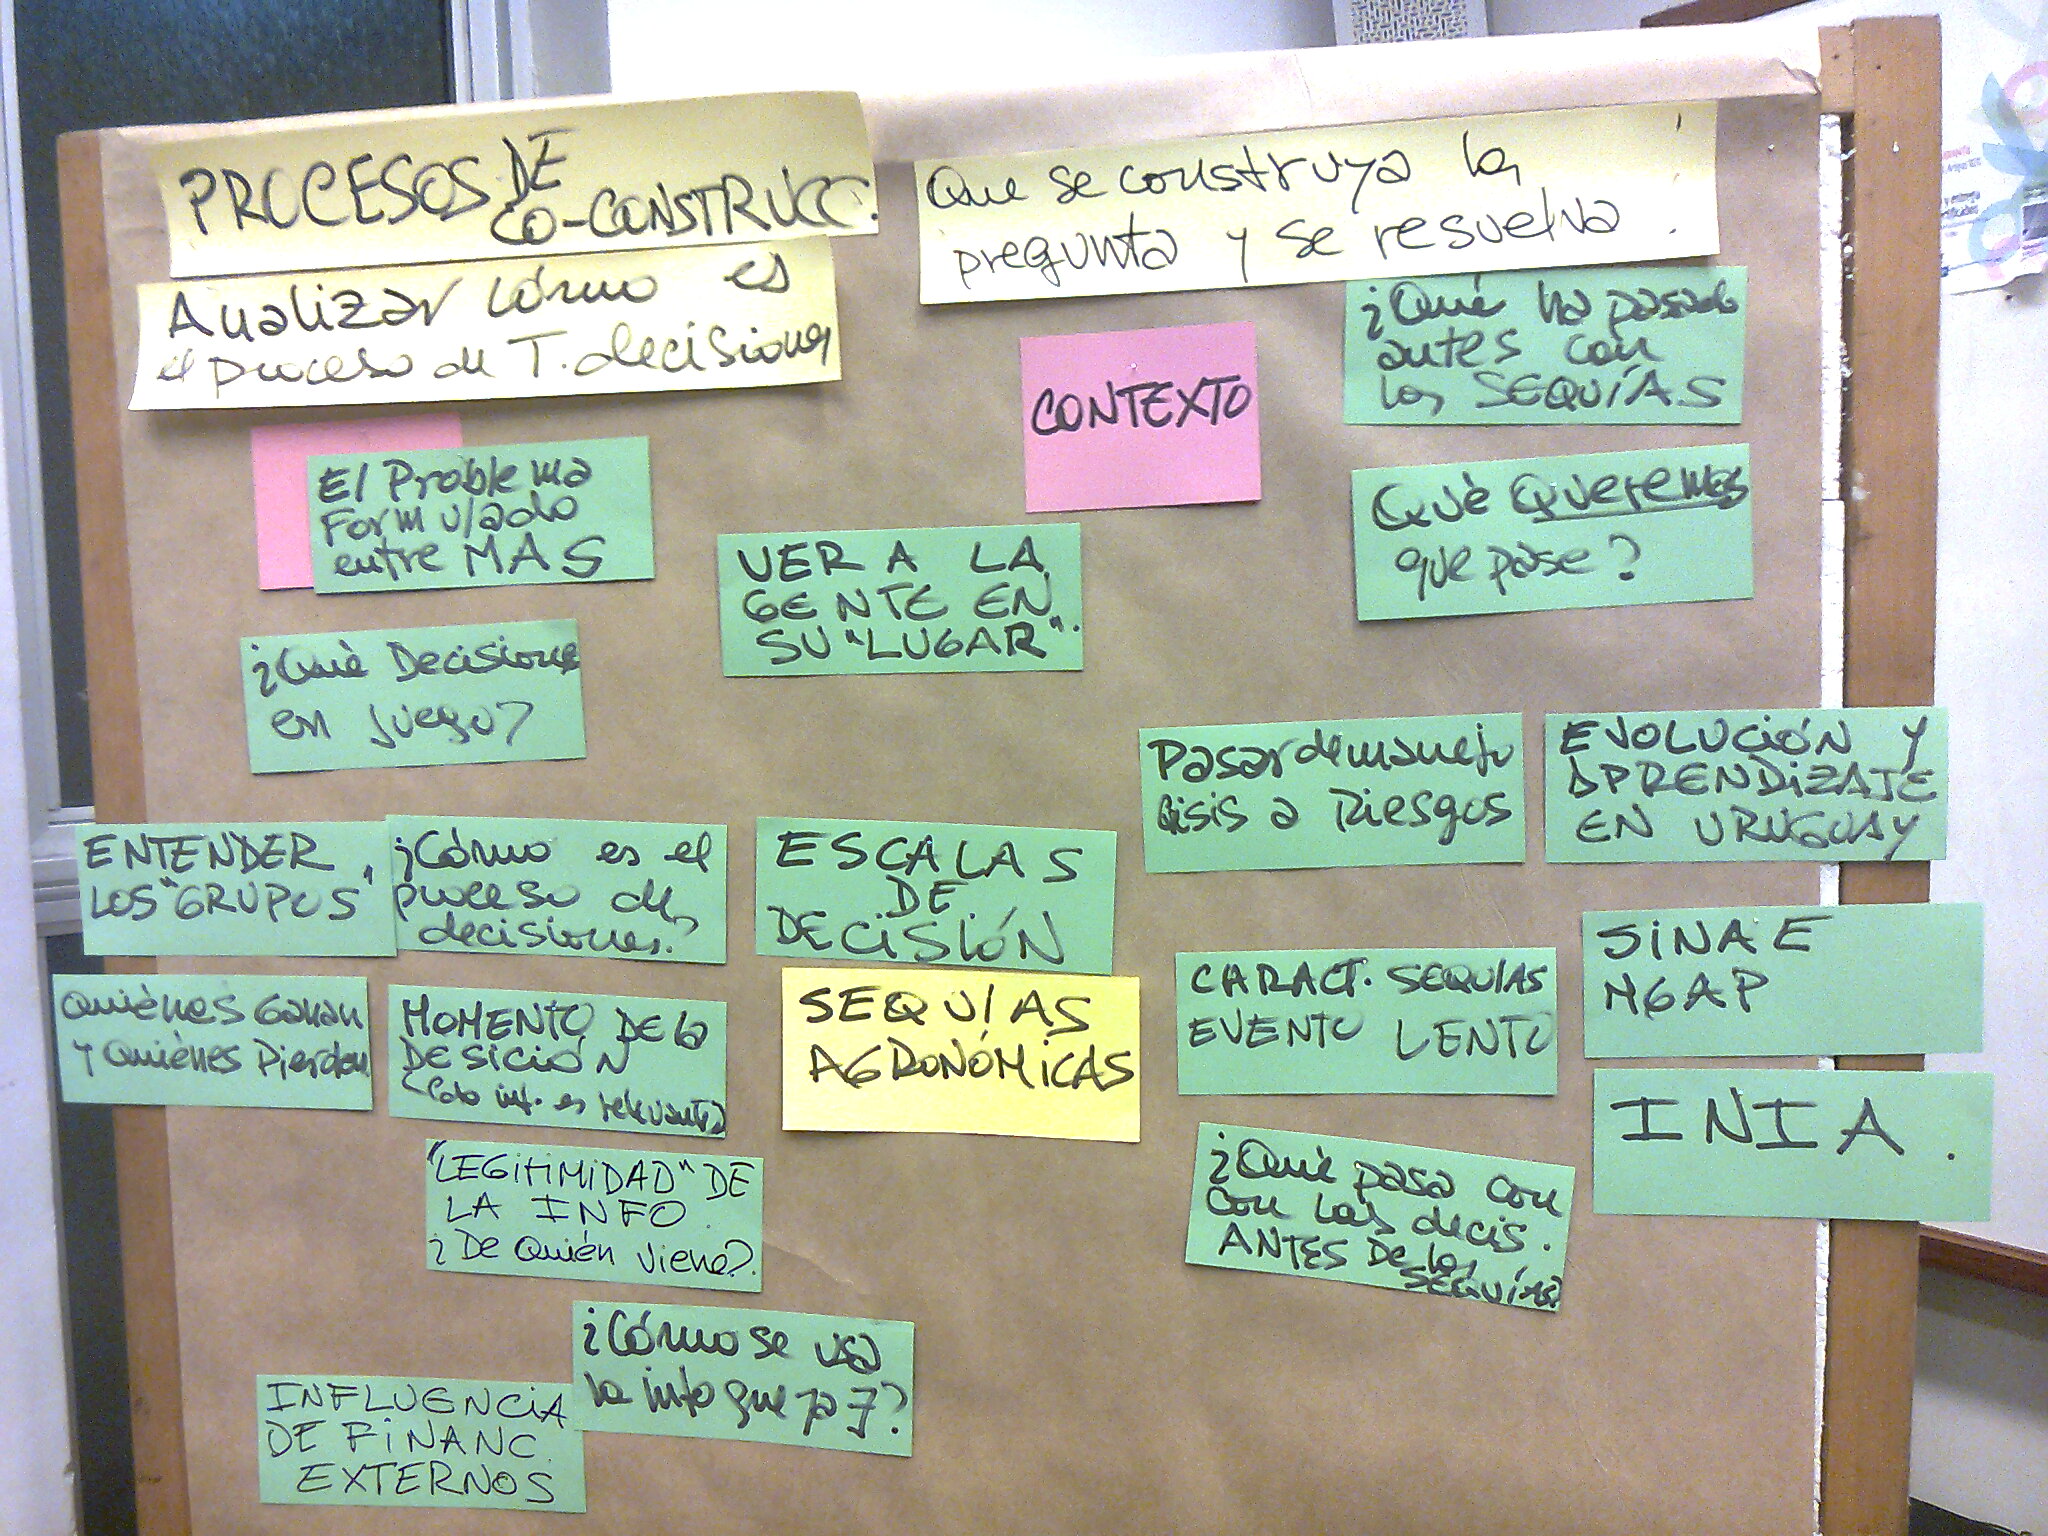 PROCESOS DE
CO-CONSTRUCC.
Analizar cómo es
el proceso de T. decisiones
Que se construya la
pregunta y se resuelva!
CONTEXTO
¿Qué ha pasado
antes con
las SEQUÍAS
Qué Queremos
que pase?
El Problema
Formulado
entre MAS
VER A LA
GENTE EN
SU "LUGAR".
¿Qué Decisiones
en juego?
Pasar de manejo
crisis a Riesgos
EVOLUCIÓN Y
APRENDIZAJE
EN URUGUAY
ENTENDER
LOS "GRUPOS"
¿Cómo es el
proceso de
decisiones?
ESCALAS
DE
DECISIÓN
SINAE
MGAP
Quiénes Ganan
y Quiénes Pierden
MOMENTO DE la
DESICIÓN
inf. es relevante
SEQUÍAS
AGRONÓMICAS
CARACT. SEQUÍAS
EVENTO LENTO
INIA.
"LEGITIMIDAD" DE
LA INFO.
¿De Quién viene?.
¿Qué pasa con
con las decis.
ANTES De las
SEQUÍAS?
¿Cómo se usa
la info que ya ∃?
INFLUENCIA
DE FINANC.
EXTERNOS